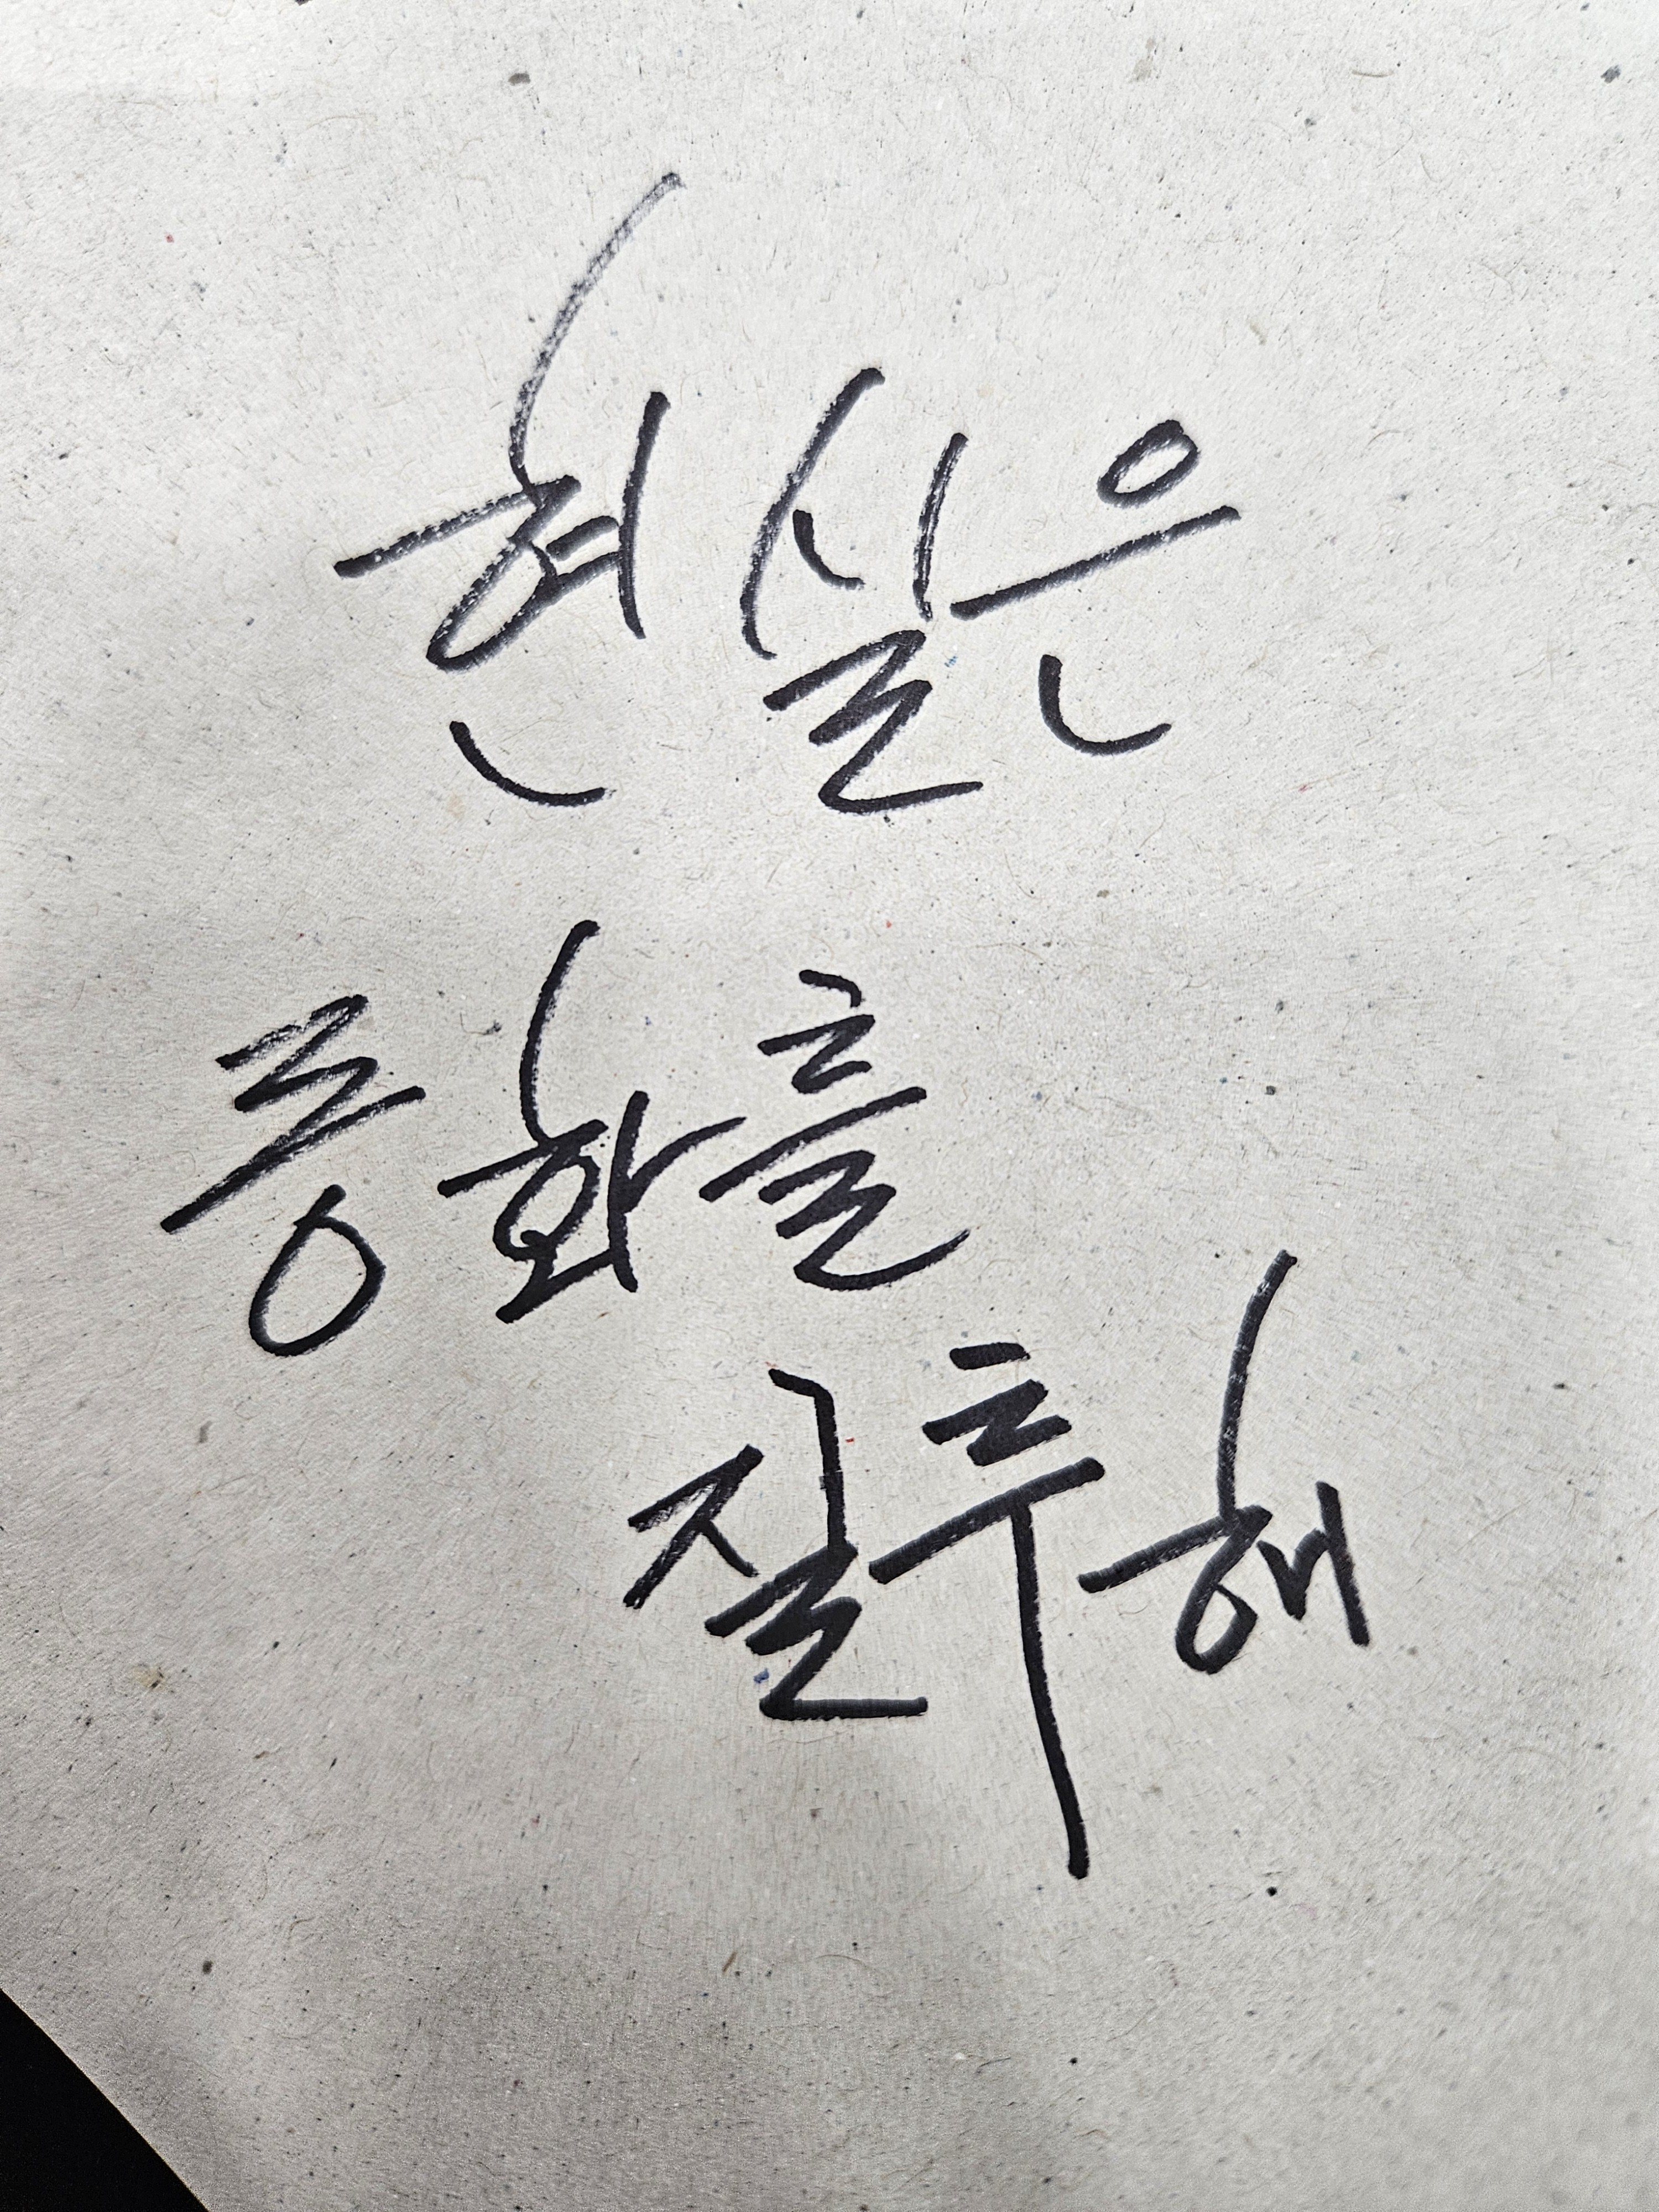 현실은
동화를
질투해